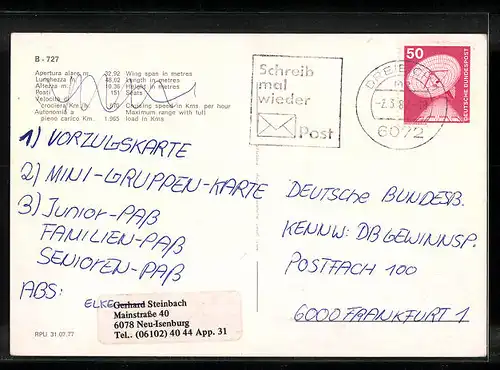 B - 727
Apertura alare m. 32.92 Wing span in metres
Lunghezza m. 48.62 Length in metres
Altezza m. 10.36 Height in metres
Posti 151 Seats
Velocità di
crociera Km./h. 970 Cruising speed in Kms. per hour
Autonomia a Maximum range with full
pieno carico Km. 1.965 load in Kms
Schreib
mal
wieder
Post
50
DEUTSCHE BUNDESPOST
6072
1) VORZUGSKARTE
2) MINI-GRUPPEN-KARTE
3) JUNIOR-PAß
FAMILIEN-PAß
SENIOREN-PAß
ABS:
ELKE Gerhard Steinbach
Mainstraße 40
6078 Neu-Isenburg
Tel.. (06102) 40 44 App. 31
RPU 31.07.77
DEUTSCHE BUNDESB.
KENNW: DB GEWINNSP.
POSTFACH 100
6000 FRANKFURT 1